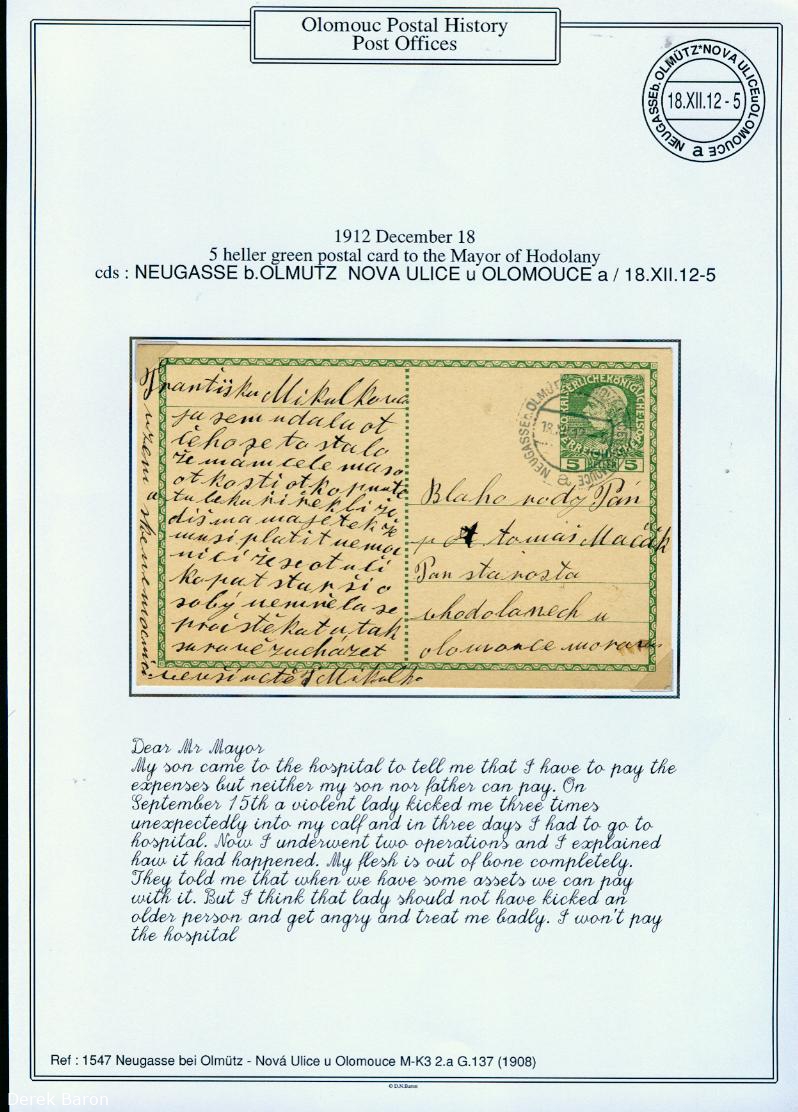 Olomouc Postal History
Post Offices
NEUGASSE b. OLMÜTZ*NOVA ULICE u OLOMOUCE
18.XII.12 - 5
a
1912 December 18
5 heller green postal card to the Mayor of Hodolany
cds : NEUGASSE b.OLMUTZ NOVA ULICE u OLOMOUCE a / 18.XII.12-5
Františka Mikulkova
ja sem udala ot
čeho se to stalo
že mam cele maso
ot kosti otkopnute
tu lekaři řekli že
diš ma majetek že
musi platit nemoc
nici že se otuli
kopat starši o
sobý neměla se
a tak
zacházet
Mikulko
5 HELLER 5
NEUGASSE b. OLMÜTZ
18.X
Blaho rody Pán
p tomáš Mačák
Pan starosta
vhodolanech u
olomouce morava
Dear Mr Mayor
My son came to the hospital to tell me that I have to pay the
expenses but neither my son nor father can pay. On
September 15th a violent lady kicked me three times
unexpectedly into my calf and in three days I had to go to
hospital. Now I underwent two operations and I explained
haw it had happened. My flesh is out of bone completely.
They told me that when we have some assets we can pay
with it. But I think that lady should not have kicked an
older person and get angry and treat me badly. I won't pay
the hospital
Ref : 1547 Neugasse bei Olmütz - Nová Ulice u Olomouce M-K3 2.a G.137 (1908)
© D.N.Baron
Derek Baron